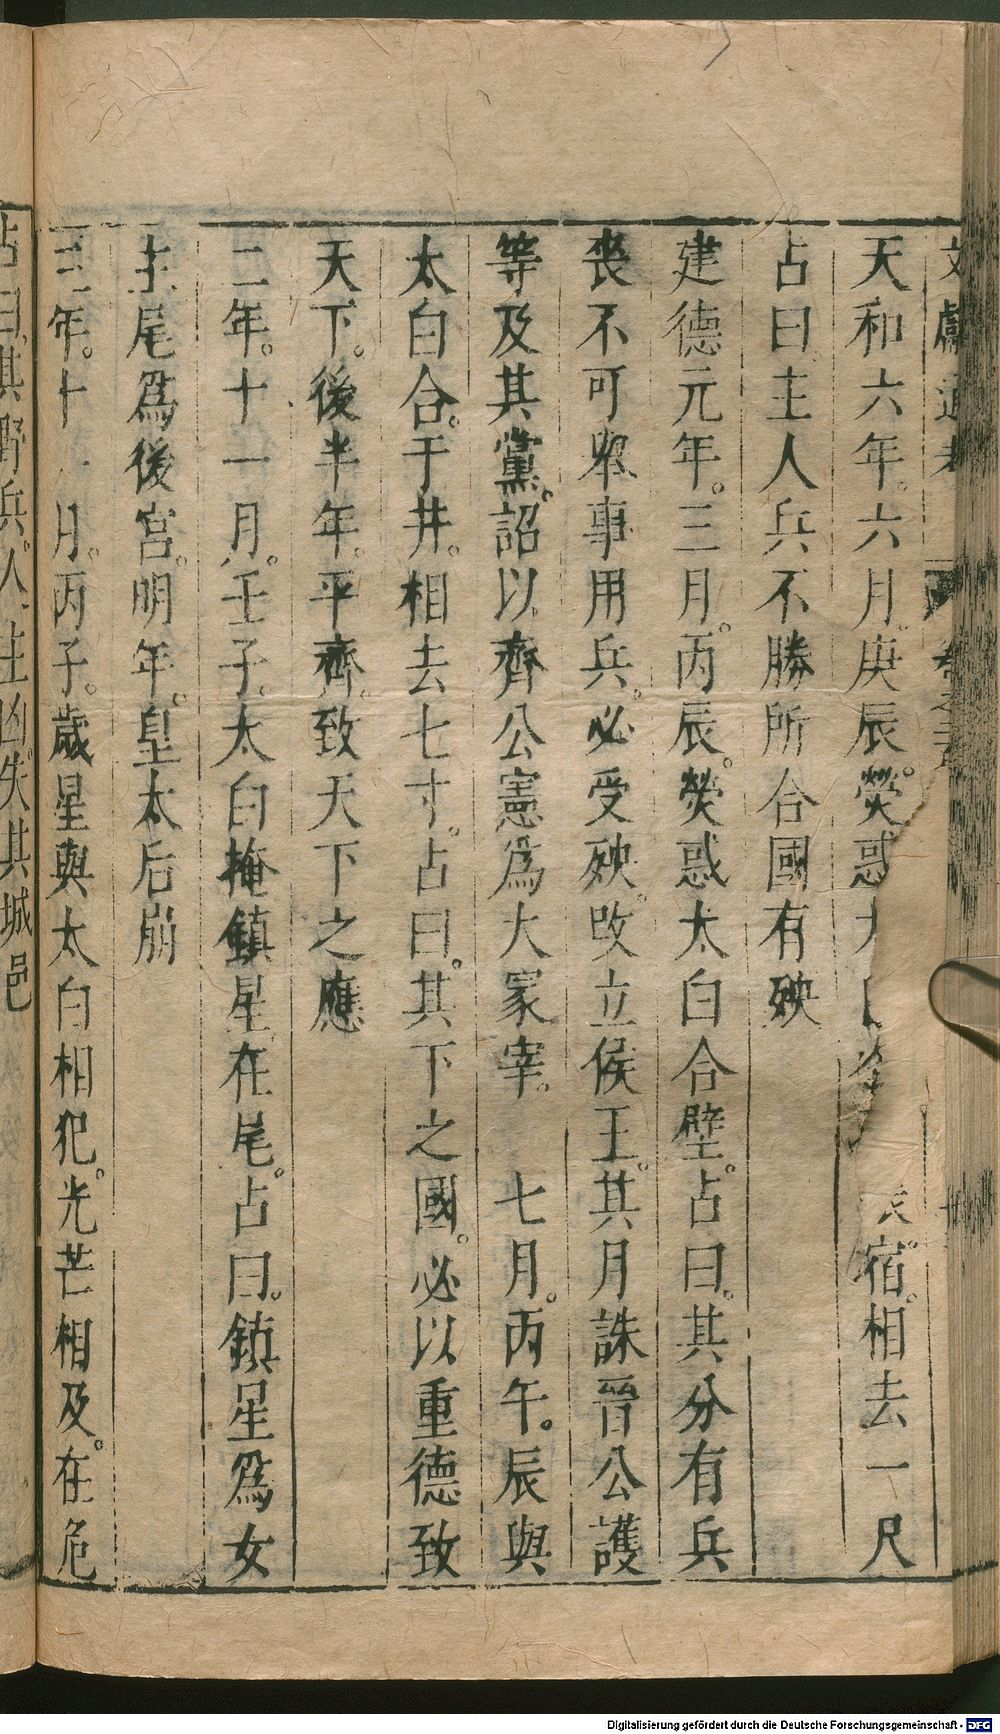 文獻通考 卷之
天和六年。六月。庚辰。熒惑太 宿。相去一尺
占曰主人兵不勝所合國有殃
建德元年。三月。丙辰。熒惑太白合壁。占曰。其分有兵
喪不可舉事用兵。必受殃。改立侯王。其月誅晉公護
等及其黨。詔以齊公憲爲大冢宰。 七月。丙午。辰與
太白合。于井。相去七寸。占曰。其下之國。必以重德致
天下。後半年。平齊。致天下之應
二年。十一月。壬子。太白掩鎮星在尾。占曰。鎮星爲女
主尾爲後宮。明年。皇太后崩
三年。十一月。丙子。歲星與太白相犯。光芒相及。在危
占曰。其野兵。人主凶。失其城邑
Digitalisierung gefördert durch die Deutsche Forschungsgemeinschaft - DFG